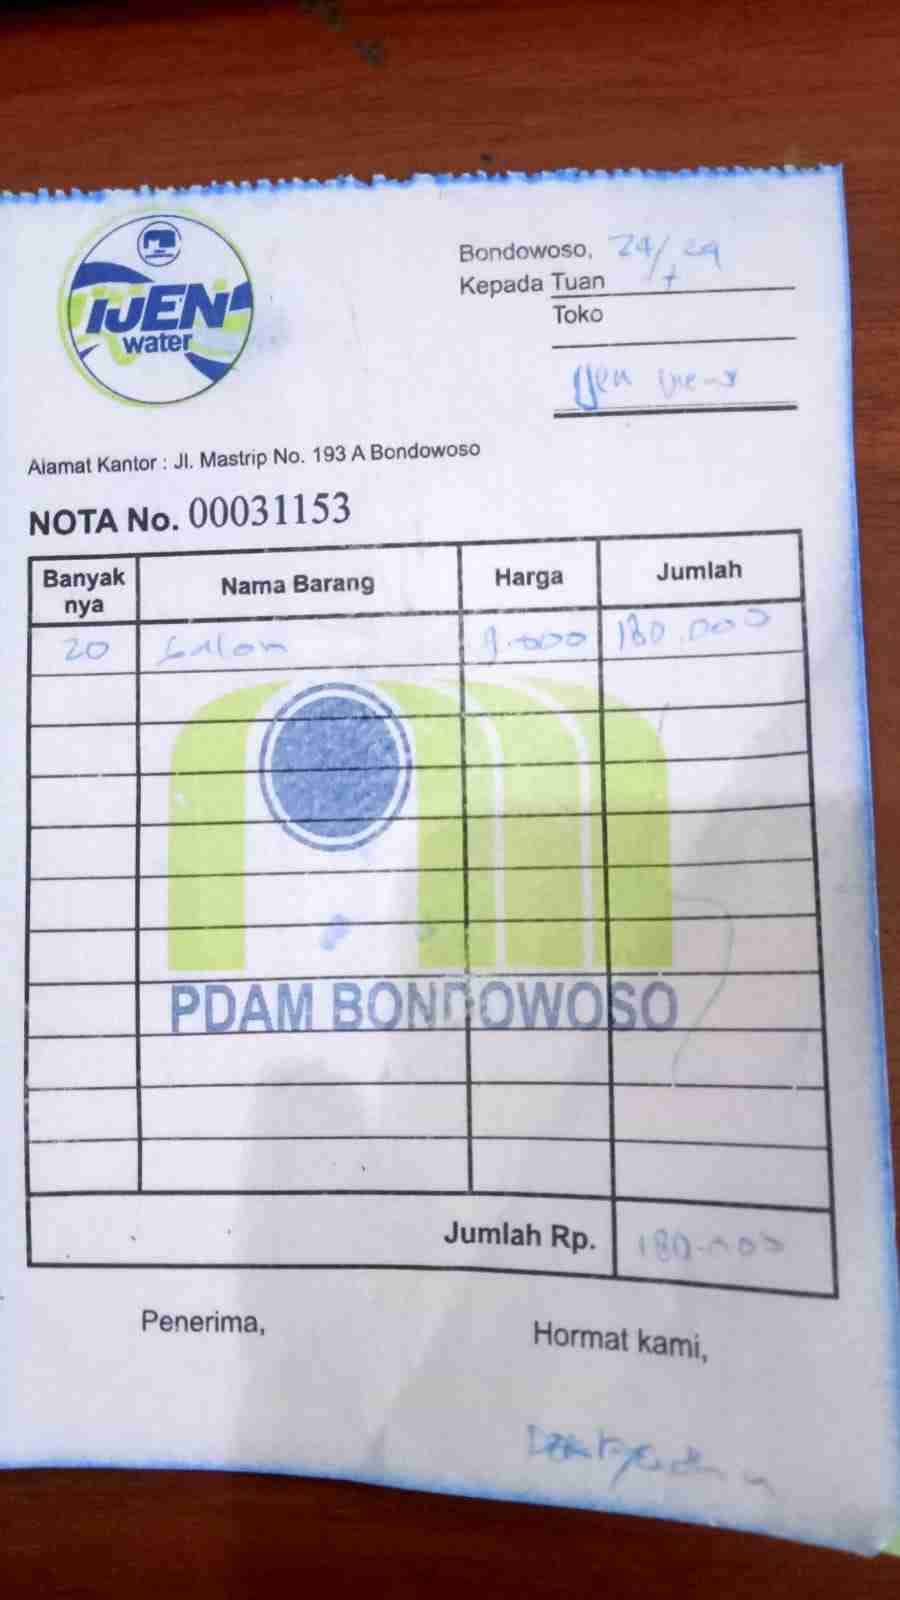 IJEN
water
Bondowoso, 24/7 24
Kepada Tuan
Toko
Ijen View
Alamat Kantor : Jl. Mastrip No. 193 A Bondowoso
NOTA No. 00031153
Banyak nya Nama Barang Harga Jumlah
20 Galon 9.000 180.000
PDAM BONDOWOSO
Jumlah Rp. 180.000
Penerima,
Hormat kami,